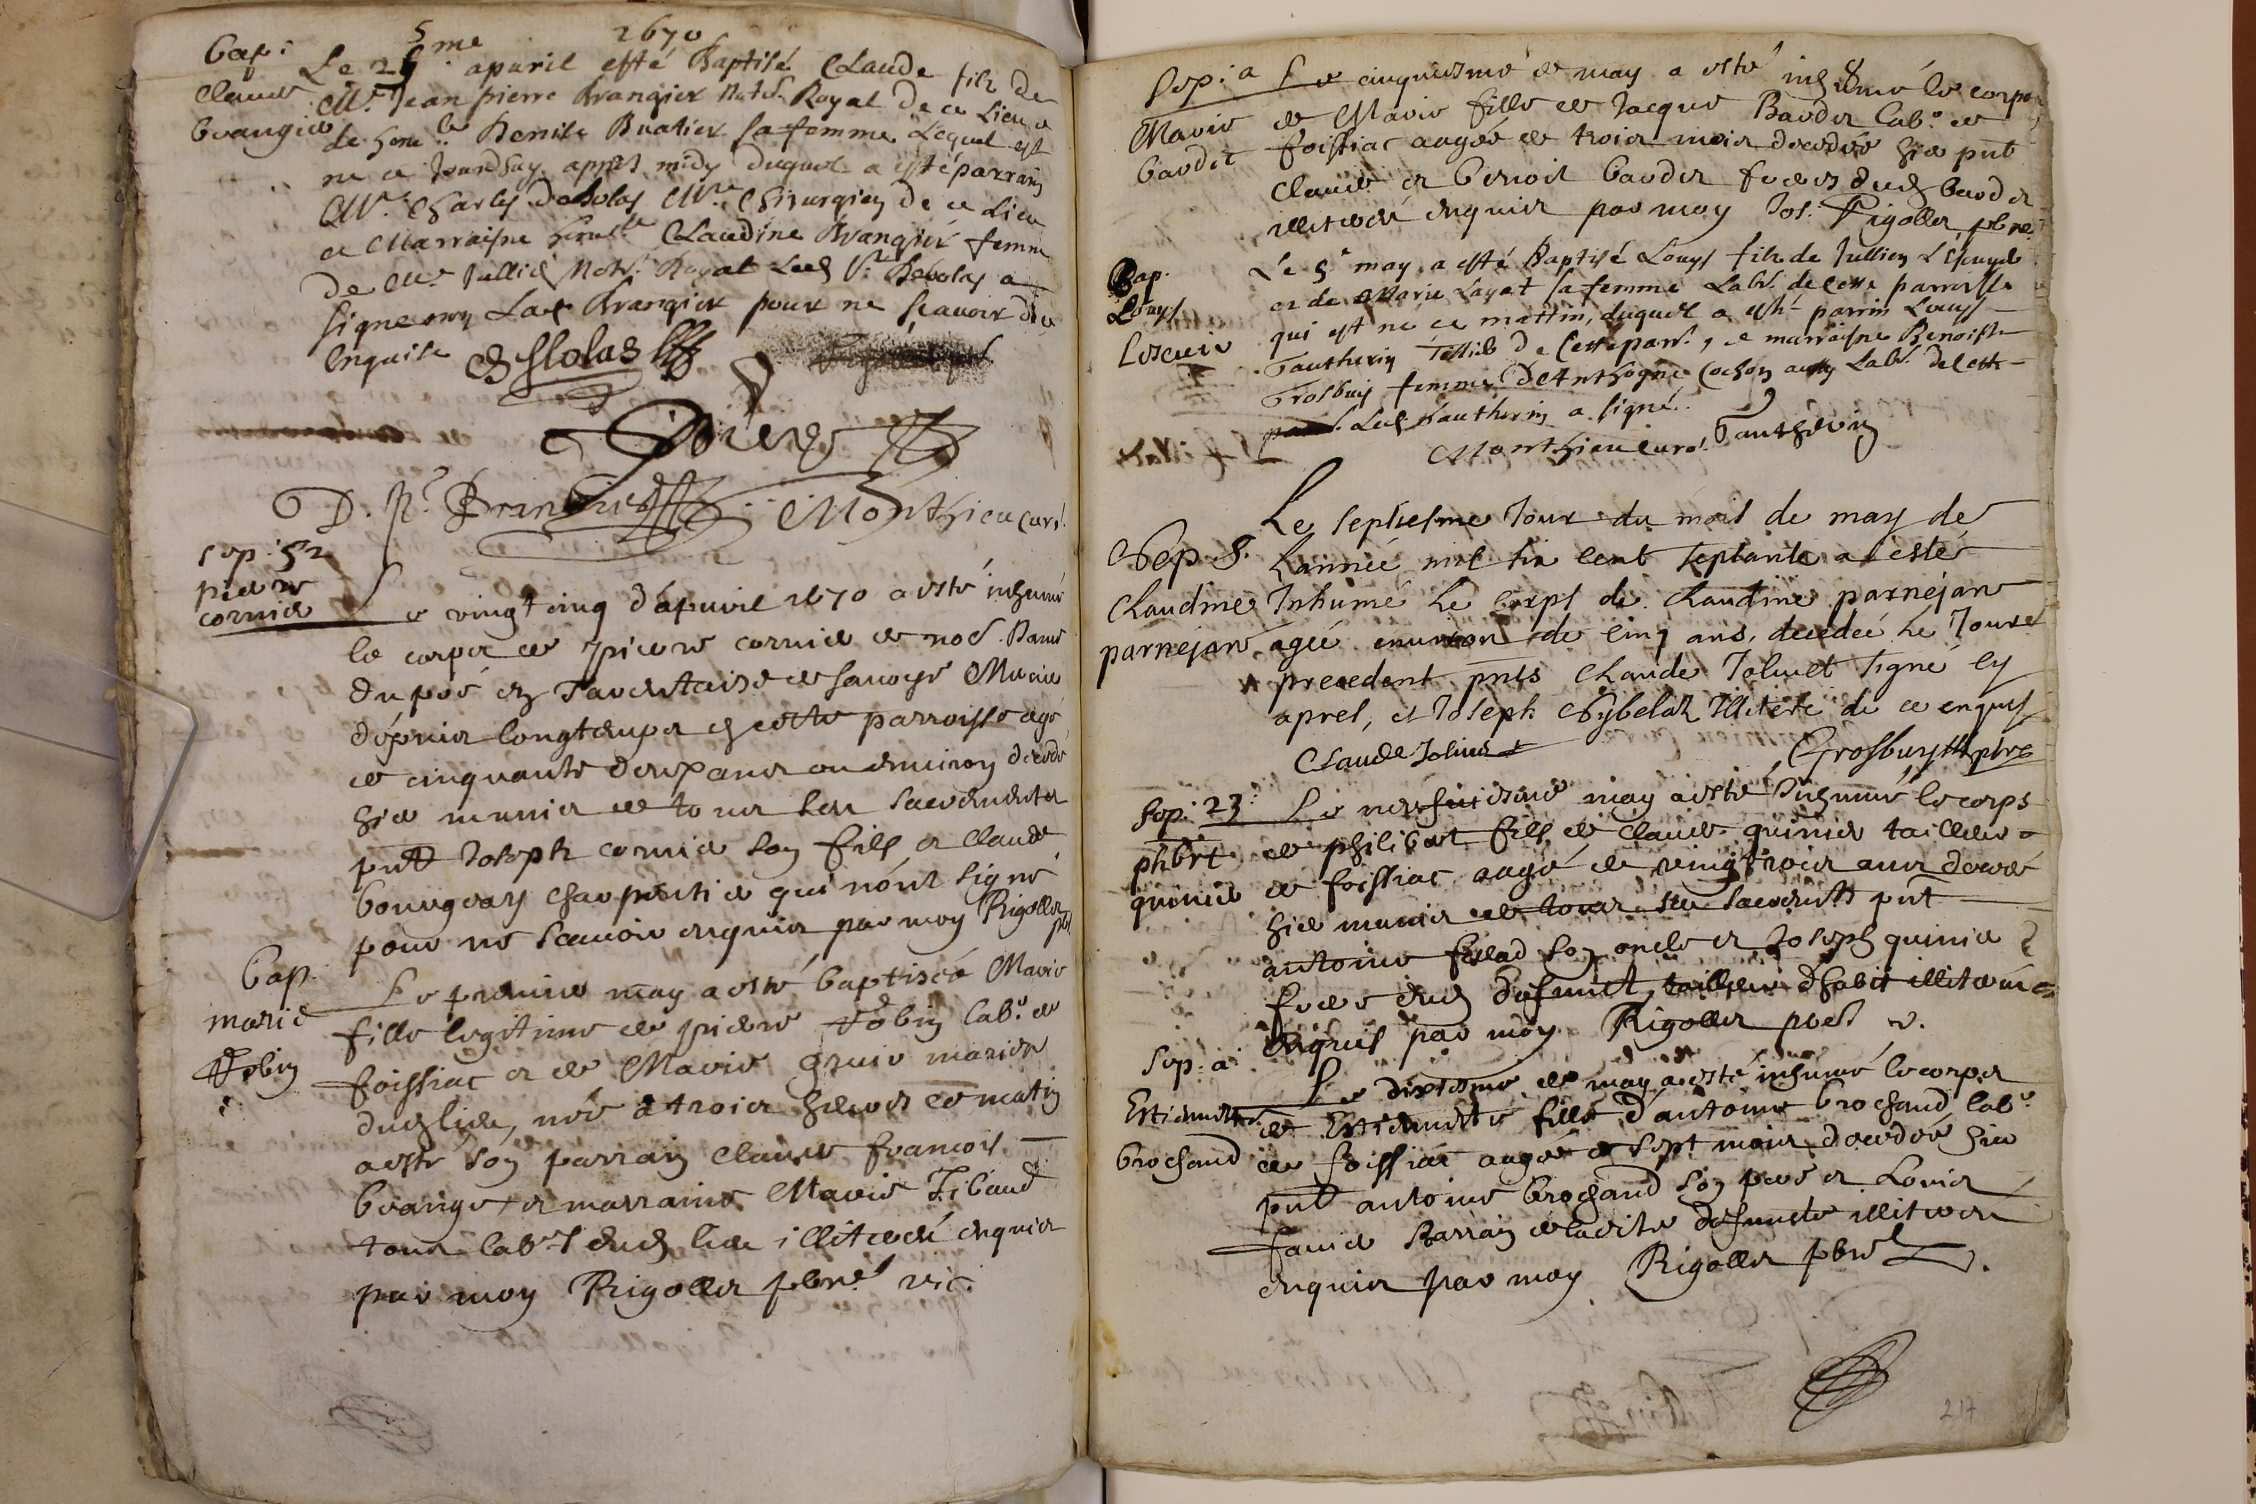 1670
Bap:
Claude
Brangier
Le 25me apuril esté Baptisé Claude filz de
Mr. Jean pierre Brangier Notre. Royal de ce Lieu
de honle. Benoite Buatier sa femme Lequel est
ne ce Jourdhuy appres midy duquel a esté parrain
Mr. Charles Mre. Chirurgien de ce Lieu
et Marraisne honnle Claudine Brangier femme
de Mr. Jullien Notre. Royal Led Sr. a
signe non Lad Brangier pour ne scauoir de ce
enquise
Monthieu curé.
Sep: 52
pierre
cornier
Le vingt cinq d'apuril 1670 a esté inhumé
le corps de pierre cornier de nod. Dame
du pré en Tarentaise de sauoye
dépuis longtemps en cette parroisse agé
de cinquante deux ans ou enuiron decedé
hier munis de tous les sacrements
pnt Joseph cornier son fils et Claude
charpentier qui n'ont signé
pour ne scauoir enquis par moy Rigollet pbre
Bap.
marie
Robin
Le premier may a esté baptisée Marie
fille legitime de pierre Robin labr. de
foissiac et de Marie gruie mariés
dud lieu, née a trois heures ce matin
a esté son parrain Claude francois
brange et marraine Marie Tibaud
tous labrs dud lieu illiterés enquis
par moy Rigollet pbre vic.
Sep: a
Marie
baudet
Le cinquiesme de may a esté inhumé le corps
de Marie fille de Jacque Baudet labr. de
foissiac aagée de trois mois decedée hier pnt
Claude et benoit baudet freres dud baudet
illiterés enquis par moy Jos. Rigollet pbre.
Bap.
Louys
Lescuie
Le 5e may a esté Baptisé Louys filz de Jullien
et de Marie Layat sa femme Labr. de cette parroisse
qui est né ce mattin, duquel a esté parrin Louys
Tautherin Tessier de cette parr., et marraisne Benoiste
Grosbuis femme d'Anthoyne Cochon aussy Labr. de cette
parr. Led Tautherin a signé.
Monthieu curé. Tautherin
Sep. 8.
Claudine
parnejan
Le septiesme Jour du mois de may de
L'année mil six cent septante a esté
Inhumé le corps de Claudine parnejan
agée enuiron de cinq ans, decedeé le Jour
precedent pnts Claude Joliuet signé cy
apres, et Joseph Illiteré de ce enquis
Claude Joliuet
Grosbuys pbre
Sep: 23.
phbrt
quinier
Le neufuiesme may a esté Inhumé le corps
de philibert fils de Claude quinier tailleur
de foissiac aagé de vingt trois ans decedé
hier munis de tous ses sacrents pnt
antoine son oncle et Joseph quinier
frere dud defunct, tailleur d'habit illiterés
enquis par moy Rigollet pbre v.
Sep: a
Estiennette
brochand
Le dixiesme de may a esté inhumé le corps
de Estiennette fille d'antoine brochand labr.
de foissiac aagée de sept mois decedée hier
pnt antoine brochand son pere et Louis
parrain de ladite defuncte illiterés
enquis par moy Rigollet pbre v.
217